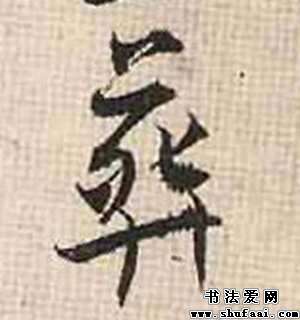 葬
书法爱网
www.shufaai.com